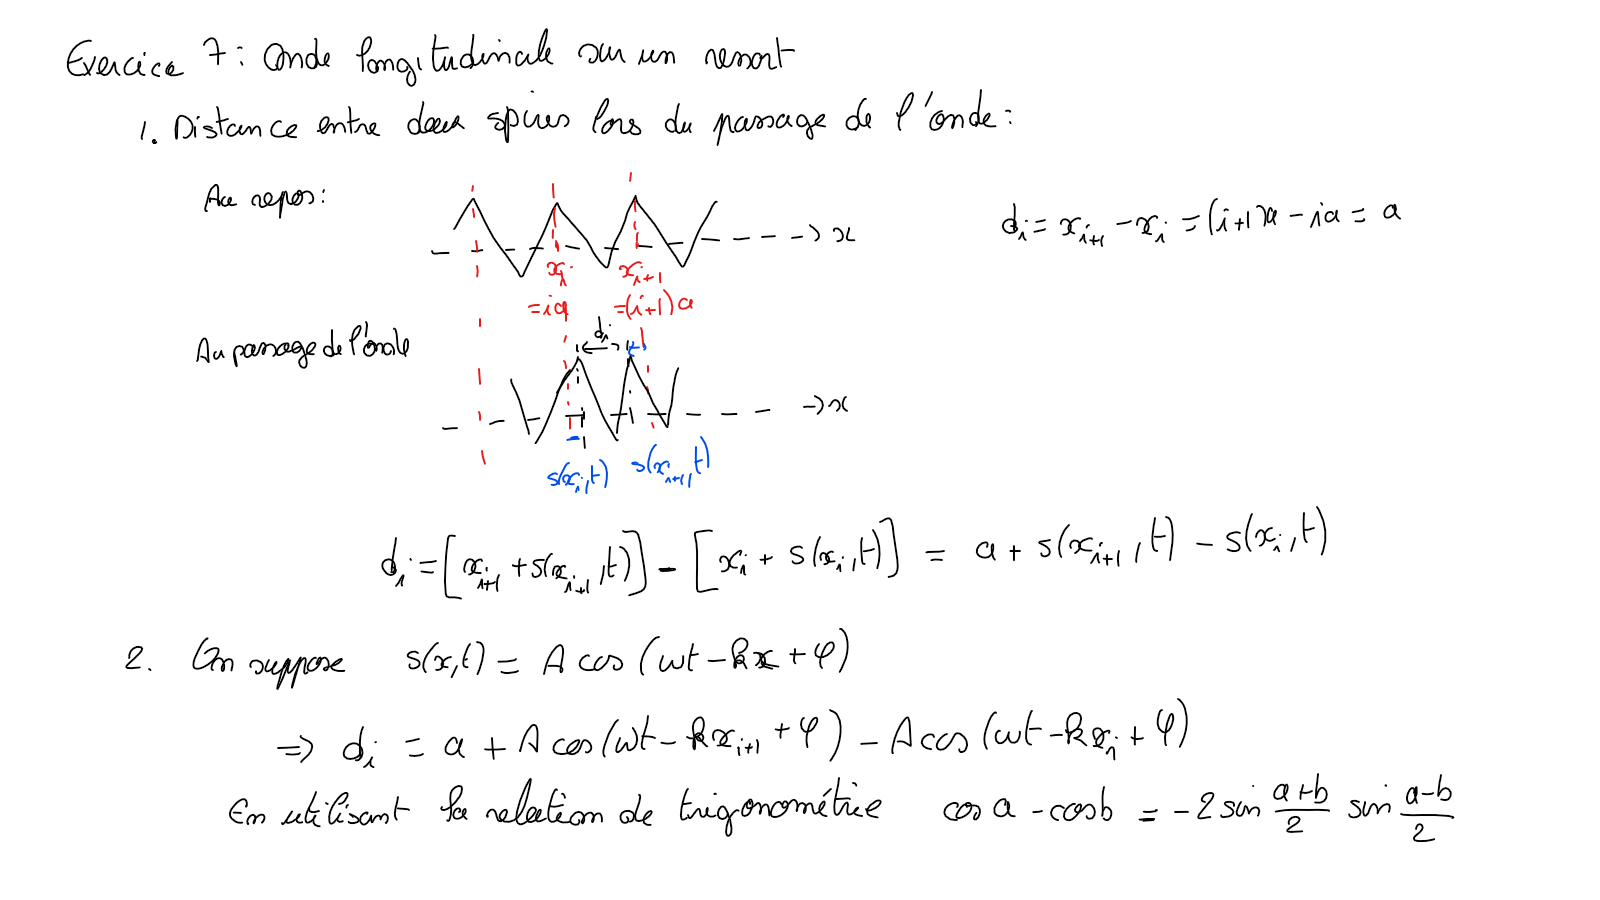 Exercice 7 : Onde longitudinale sur un ressort
1. Distance entre deux spires lors du passage de l'onde :
Au repos :
→ x
dᵢ = xᵢ₊₁ - xᵢ = (i+1)a - ia = a
xᵢ xᵢ₊₁
= ia =(i+1)a
dᵢ
Au passage de l'onde
→ x
s(xᵢ,t) s(xᵢ₊₁,t)
dᵢ = [xᵢ₊₁ + s(xᵢ₊₁,t)] - [xᵢ + s(xᵢ,t)] = a + s(xᵢ₊₁,t) - s(xᵢ,t)
2. On suppose s(x,t) = A cos(ωt - kx + φ)
=> dᵢ = a + A cos(ωt - kxᵢ₊₁ + φ) - A cos(ωt - kxᵢ + φ)
En utilisant la relation de trigonométrie cos a - cos b = -2 sin (a+b)/2 sin (a-b)/2